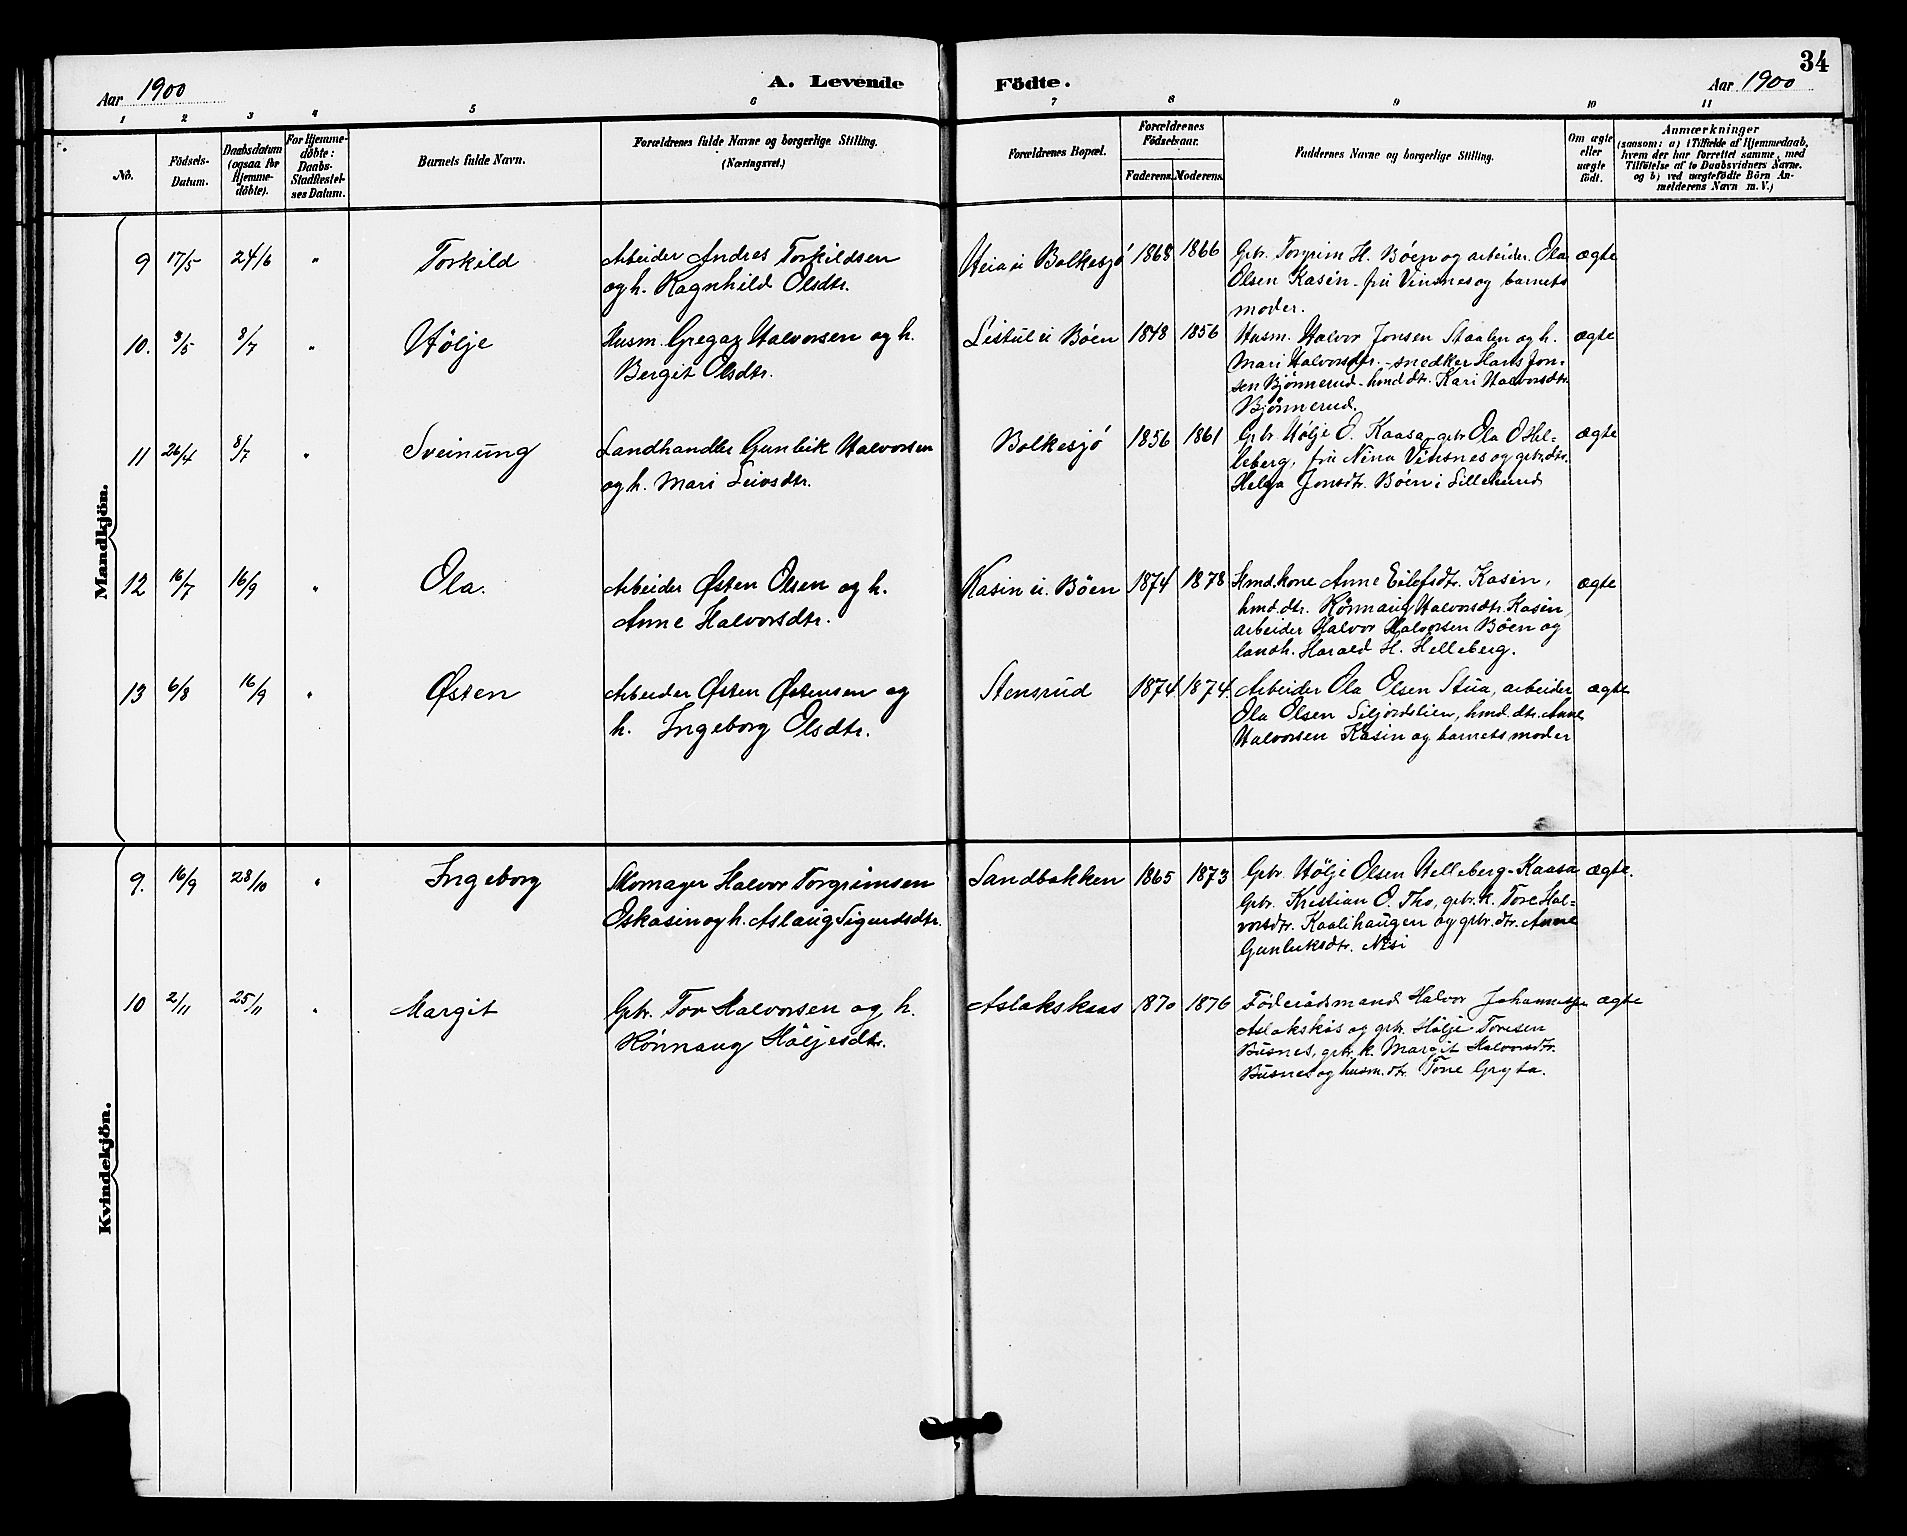 34
Aar 1900
A. Levende
Födte.
Aar 1900
1 2 3 4 5 6 7 8 9 10 11
No.
Födsels-
Datum.
Daabsdatum
(ogsaa for
Hjemme-
döbte).
For Hjemme-
döbte:
Daabs-
Stadfæstel-
ses Datum.
Barnets fulde Navn.
Forældrenes fulde Navne og borgerlige Stilling.
(Næringsvei.)
Forældrenes Bopæl.
Forældrenes
Födselsaar.
Faderens. Moderens.
Faddernes Navne og borgerlige Stilling.
Om ægte
eller
uægte
födt.
Anmærkninger
(saasom: a) i Tilfælde af Hjemmedaab,
hvem der har forrettet samme, med
Tilföielse af to Daabsvidners Navne.
og b) ved uægtefödte Börn An-
melderens Navn m. V.)
Mandkjön.
9 17/5 24/6 " Torkild
Arbeider Andres Torkildsen
og h. Ragnhild Olsdtr.
Heia u Bolkesjö 1868 1866
Gbr. Torgrim H. Böen og arbeider Ola
Olsen Kasin - frü Vinsnes og barnets
moder.
ægte
10. 3/5 8/7 " Hölje
Husm. Gregar Halvorsen og h.
Bergit Olsdtr.
Listul u Böen 1848 1856
Husm. Halvor Jonsen Staalen og h.
Mari Halvorsdtr. - snedker Hans Jon-
sen Bjönnerud - hmd dtr. Kari Halvorsdtr.
Bjönnerud.
ægte
11 26/4 8/7 " Sveinung
Landhandler Gunleik Halvorsen
og h. Mari Leivsdtr.
Bolkesjö 1856 1861
Gbr. Hölje O. Kaasa - gbr Ola O Hel-
leberg, frü Nina Vinsnes og gbr. dtr.
Helga Jonsdtr. Böen i Lillelund
ægte
12 16/7 16/9 " Ola.
Arbeider Østen Olsen og h.
Anne Halvorsdtr.
Kasin u. Böen 1874 1878
Hmd. kone Anne Eilefsdtr. Kasin,
hmd. dtr. Rönnaug Halvorsdtr. Kasin,
arbeider Halvor Halvorsen Böen og
landh. Harald H. Helleberg.
ægte
13 6/8 16/9 " Østen
Arbeider Østen Østensen og
h. Ingeborg Olsdtr.
Stensrud 1874 1874.
Arbeider Ola Olsen Stua, arbeider
Ola Olsen Siljordslien, hmd. dtr. Anne
Halvorsen Kasin og barnets moder
ægte
Kvindekjön.
9. 16/9 28/10 " Ingeborg
Skomager Halvor Torgrimsen
Oskasin og h. Aslaug Sigurdsdtr.
Sandbakken 1865 1873
Gbr. Hölje Olsen Helleberg-Kaasa
Gbr. Kristian O. Tho, gbr. k. Tore Hal-
vorsdtr. Kaalihaugen og gbr. dtr. Anne
Gunleiksdtr. Nisi
ægte.
10 2/11 25/11 " Margit
Gbr. Tov Halvorsen og h.
Rönnaug Höljesdtr.
Aslakskaas 1870 1876
Föderådsmand Halvor Johannesen
Aslakskås og gbr. Hölje Toresen
Busnes, gbr. k. Margit Halvorsdtr.
Busnes og husm. dtr. Tone Gryta.
ægte